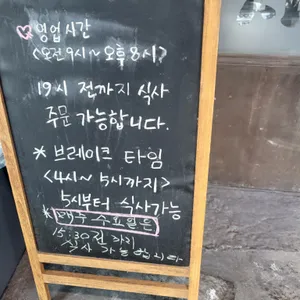 영업시간
<오전9시~오후8시>
19시 전까지 식사
주문 가능합니다.
* 브레이크 타임
<4시~5시까지>
5시부터 식사가능
*매주 수요일은
15:30분 까지
식사 가능합니다